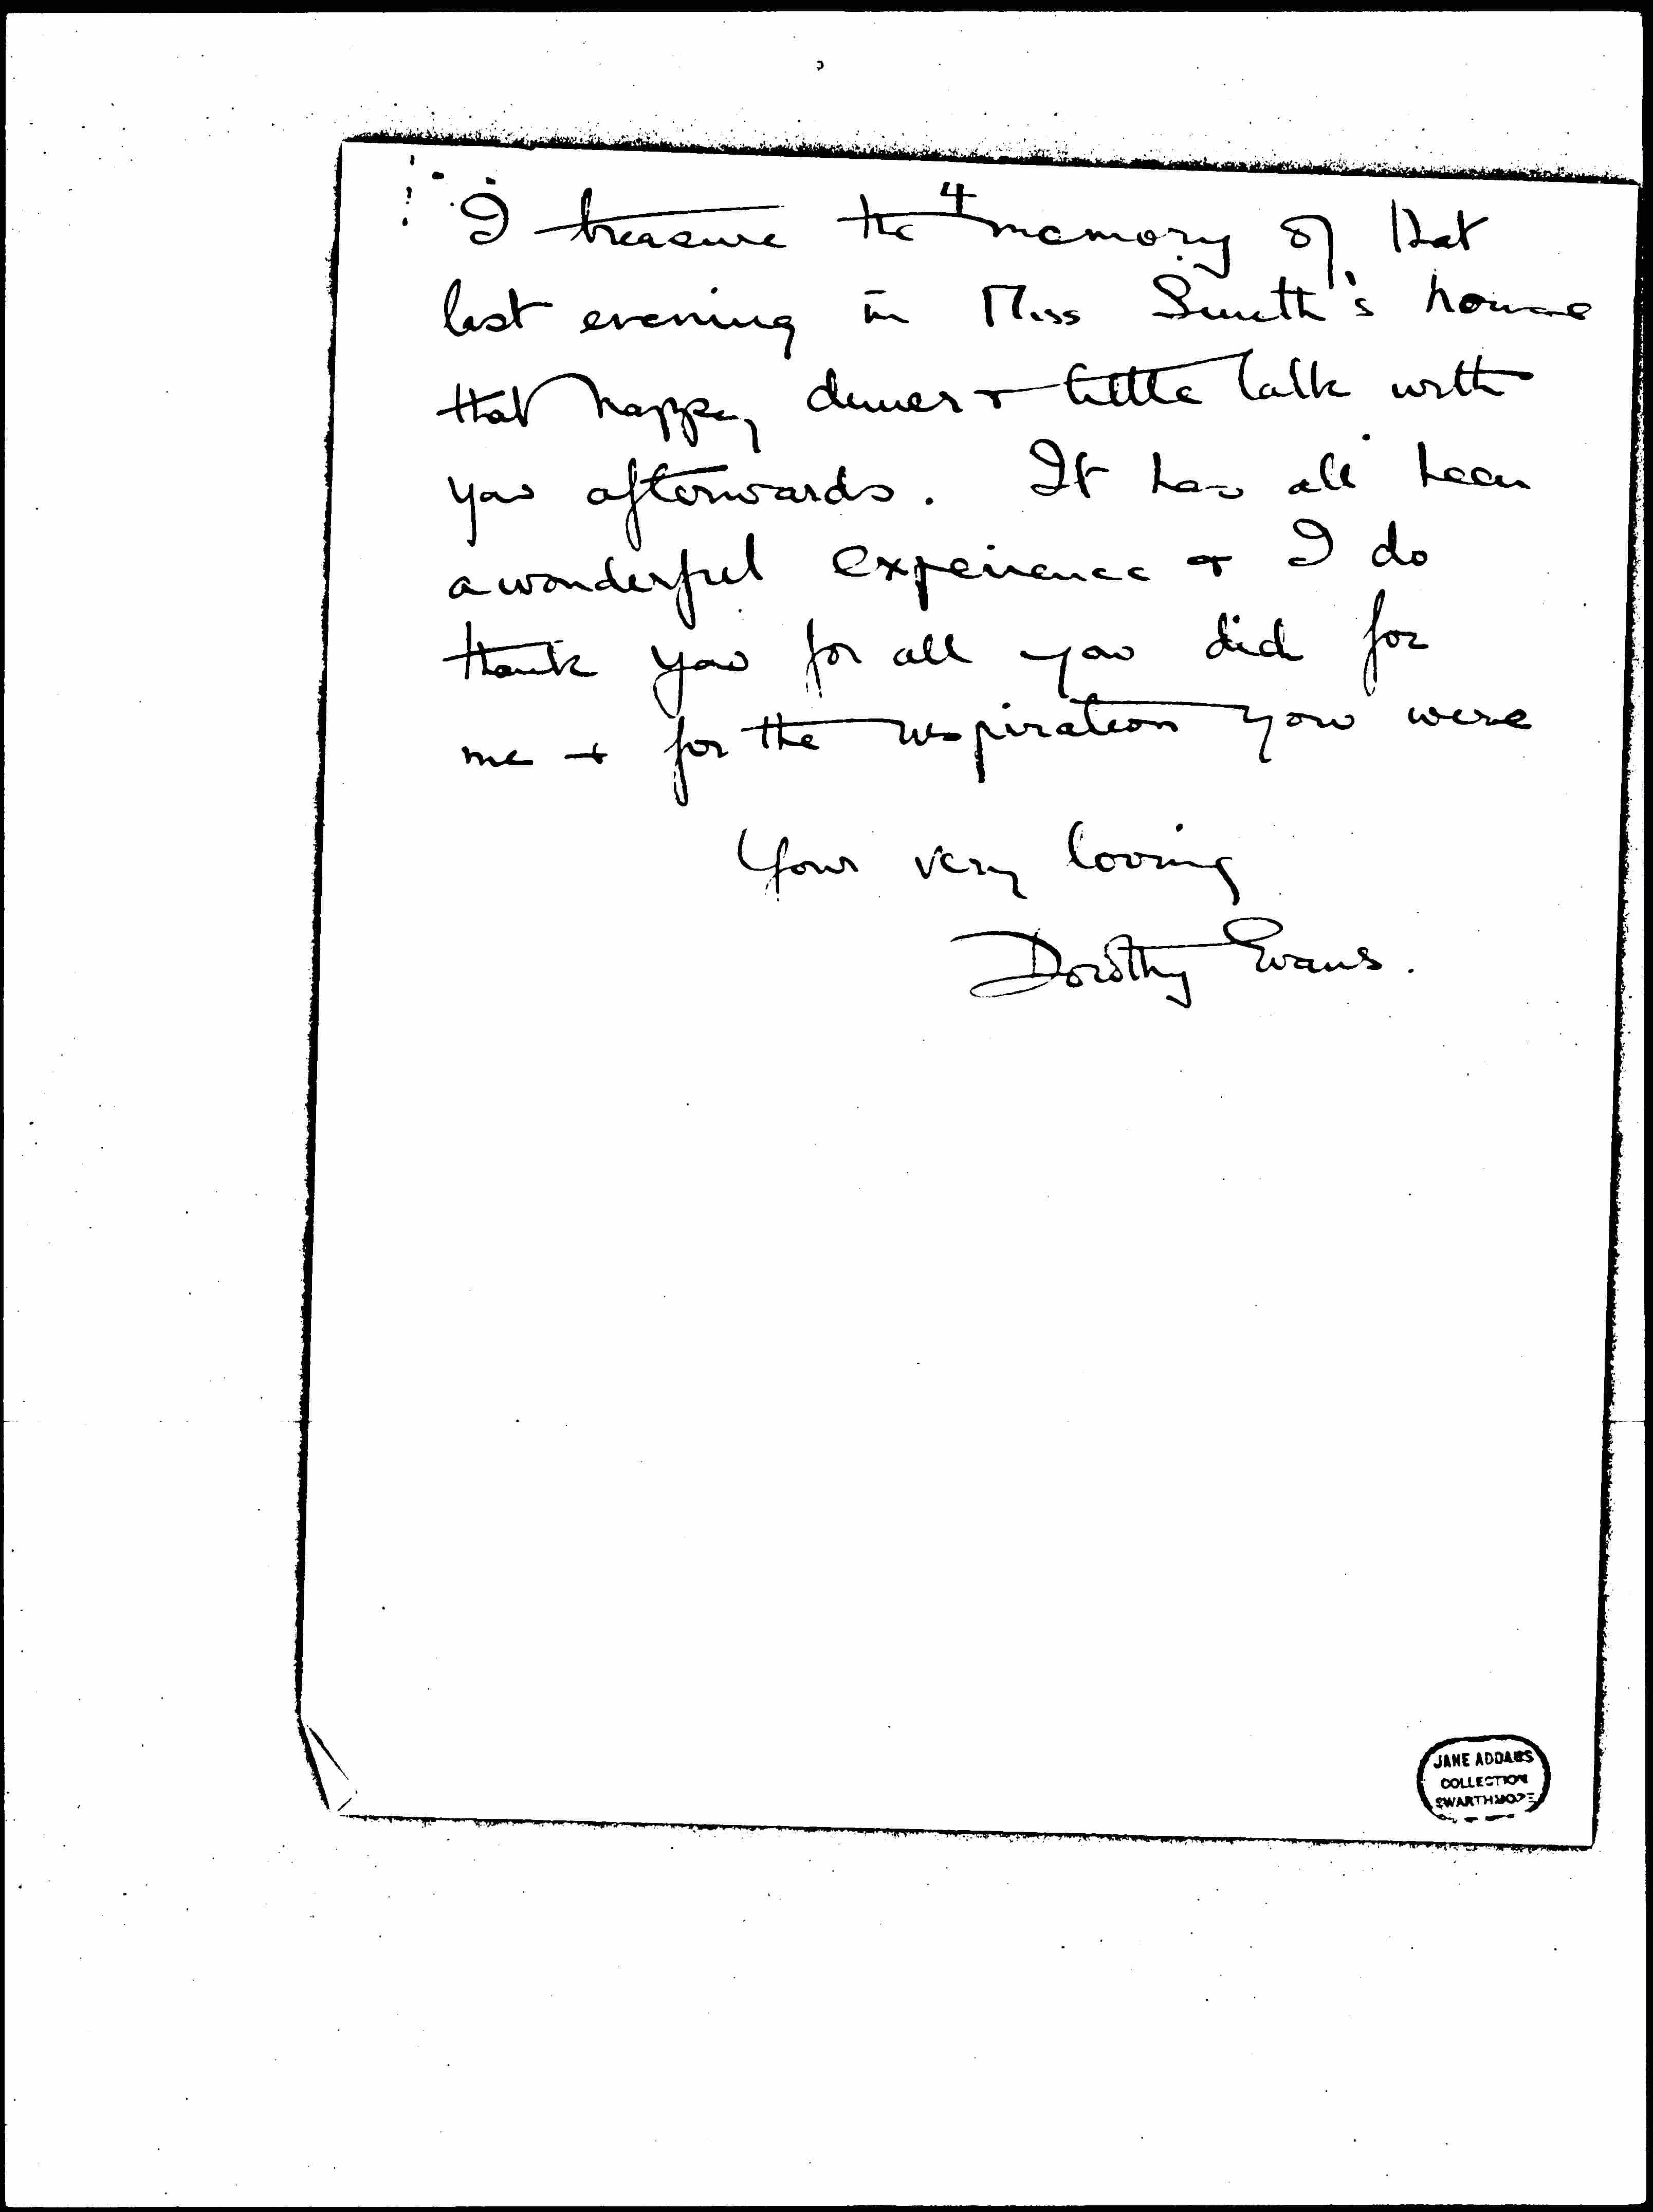 4
I treasure the memory of that
last evening in Miss Smith's house
that happy dinner & little talk with
you afterwards. It has all been
a wonderful experience & I do
thank you for all you did for
me & for the inspiration you were
Your very loving
Dorothy Evans.
JANE ADDAMS
COLLECTION
SWARTHMORE